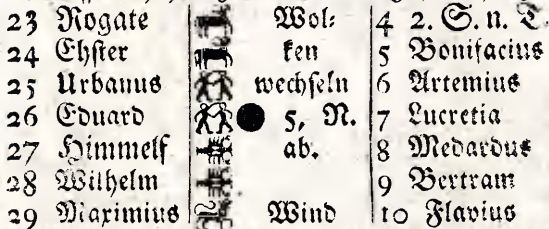 23 Rogate Wol⸗ 4 2. S. n. T.
24 Ehster ken 5 Bonifacius
25 Urbanus wechseln 6 Artemius
26 Eduard 5, N. 7 Lucretia
27 Himmelf ab. 8 Medardus
28 Wilhelm 9 Bertram
29 Maximius Wind 10 Flavius